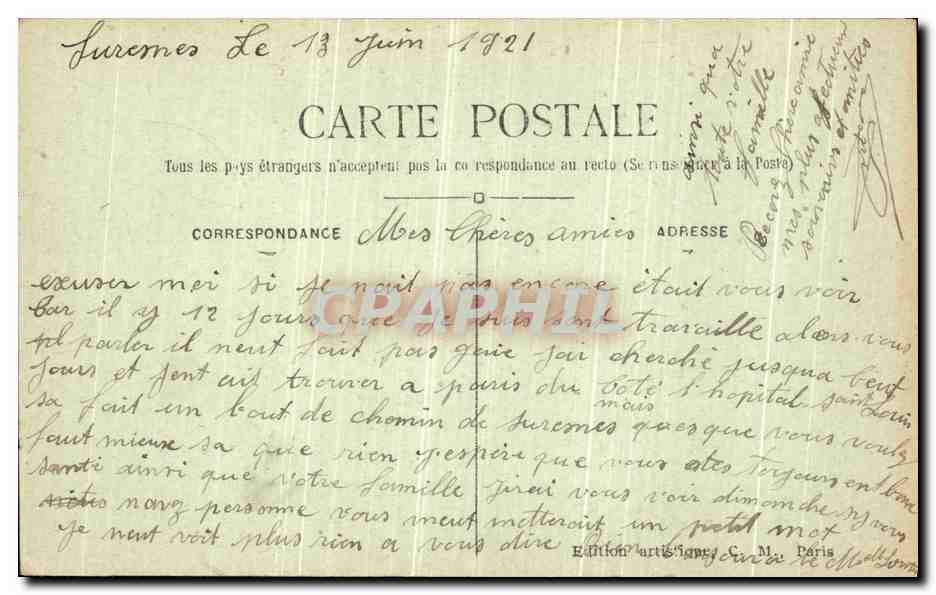 Suresnes Le 13 Juin 1921
CARTE POSTALE
Tous les pays étrangers n'acceptent pas la co respondance au recto (Se renseigner à la Poste)
CORRESPONDANCE
ADRESSE
Mes Chères amies
exuser moi si je nait pas encore était vous voir
car il y 12 jours que je suis sent travaille alors vous
parler il neut fait pas gaie jai cherché jusqua
jours et jent ait trouver a paris du coté l'hopital saint Louis
sa fait un bout de chemin de suresnes mais quesque vous voulez
faut mieux sa que rien j'espère que vous etes toujours en bone
santé ainsi que votre famille jirai vous voir dimanche si vous
navez personne vous meut metterait un petit mot
je neut voit plus rien a vous dire
ainsi que
toute votre
famille
Recevez
mes plus affectueux
souvenirs et amitiés
Edition artistique C. M., Paris
CPARHIL